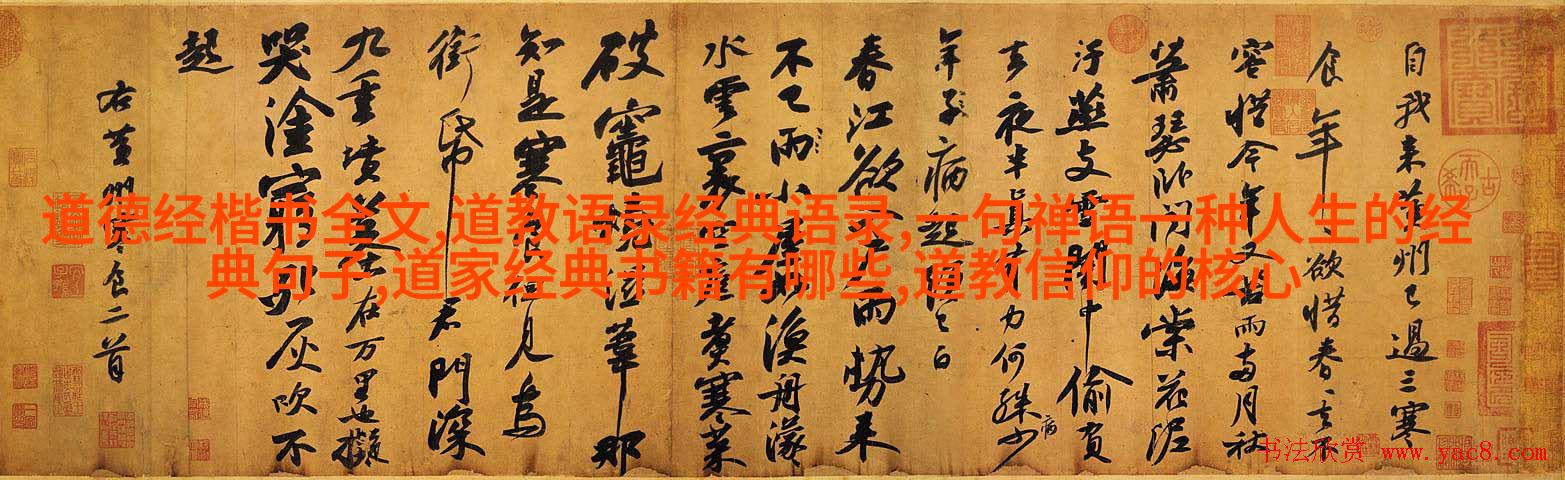 自我来黄州已過三寒
食年〻欲惜春〻去不
容惜今年又苦雨兩月秋
蕭瑟卧聞海棠花泥
汙燕支雪闇中偷負
去夜半真有力何殊少
病
年子病起須已白
春江欲入户雨勢来
不已雨小屋如漁舟濛
水雲裏空庖煑寒菜
破竈燒濕葦那
知是寒食但見烏
銜帋君門深
九重墳墓在万里也擬
哭塗窮死灰吹不
起
右黄州寒食二首
道德经楷书全文,道教语录经典语录,一句禅语一种人生的经
典句子,道家经典书籍有哪些,道教信仰的核心
书法欣赏 www.yac8.com